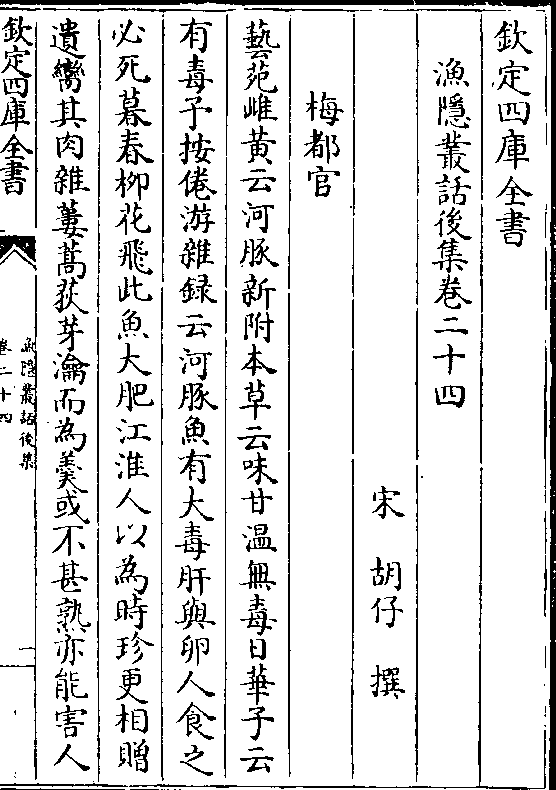 欽定四庫全書
漁隱叢話後集卷二十四
宋　胡仔　撰
梅都官
藝苑雌黄云河豚新附本草云味甘温無毒日華子云
有毒予按倦游雜録云河豚魚有大毒肝與卵人食之
必死暮春柳花飛此魚大肥江淮人以為時珍更相贈
遺臠其肉雜蔞蒿荻芽瀹而為羮或不甚熟亦能害人
欽定四庫全書
漁隱叢話後集
卷二十四
一